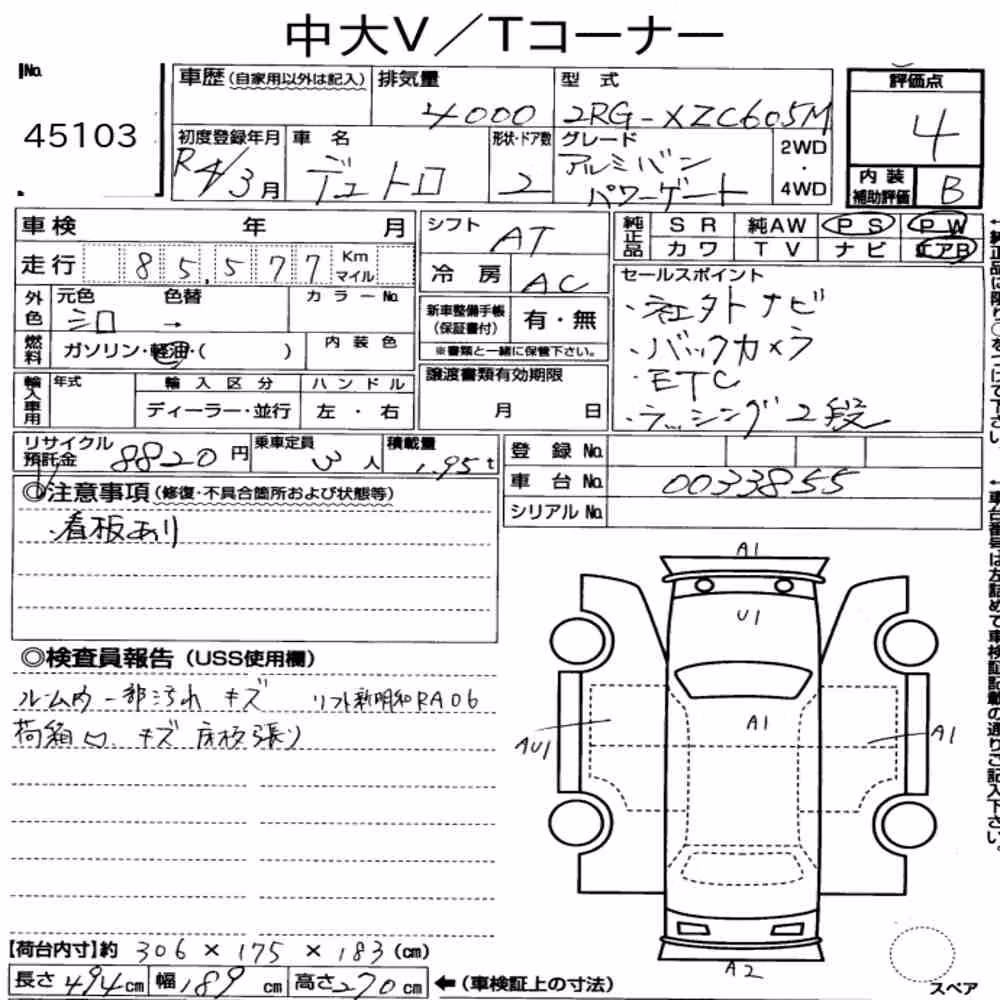 中大V／Tコーナー
No. 45103
車歴（自家用以外は記入） 排気量 4000 型式 2RG-XZC605M
初度登録年月 R4/3月 車名 デュトロ 形状・ドア数 2 グレード アルミバン パワーゲート 2WD・4WD
評価点 4
内装補助評価 B
車検 年 月
走行 85,577 Km マイル
外色 元色 シロ 色替 → カラーNo.
燃料 ガソリン・軽油・( ) 内装色
輸入車用 年式 輸入区分 ディーラー・並行 ハンドル 左・右
シフト AT
冷房 AC
新車整備手帳（保証書付） 有・無
※書類と一緒に保管下さい。
譲渡書類有効期限 月 日
純正品 SR 純AW PS PW
カワ TV ナビ エアB
セールスポイント
・社外ナビ
・バックカメラ
・ETC
・ラッシング2段
リサイクル預託金 8820円 乗車定員 3人 積載量 1.95t
登録No.
車台No. 0033855
シリアルNo.
◎注意事項（修復・不具合箇所および状態等）
・看板あり
◎検査員報告（USS使用欄）
ルーム内一部汚れ キズ リフト新明和RA06
荷箱凹、キズ 床板張り
A1
U1
A1
AU1
A1
A2
スペア
【荷台内寸】約 306×175×183(cm)
長さ494cm 幅189cm 高さ270cm ←（車検証上の寸法）
←純正品に限り○をつけて下さい。
←車台番号は左詰めで車検証記載の通りご記入下さい。